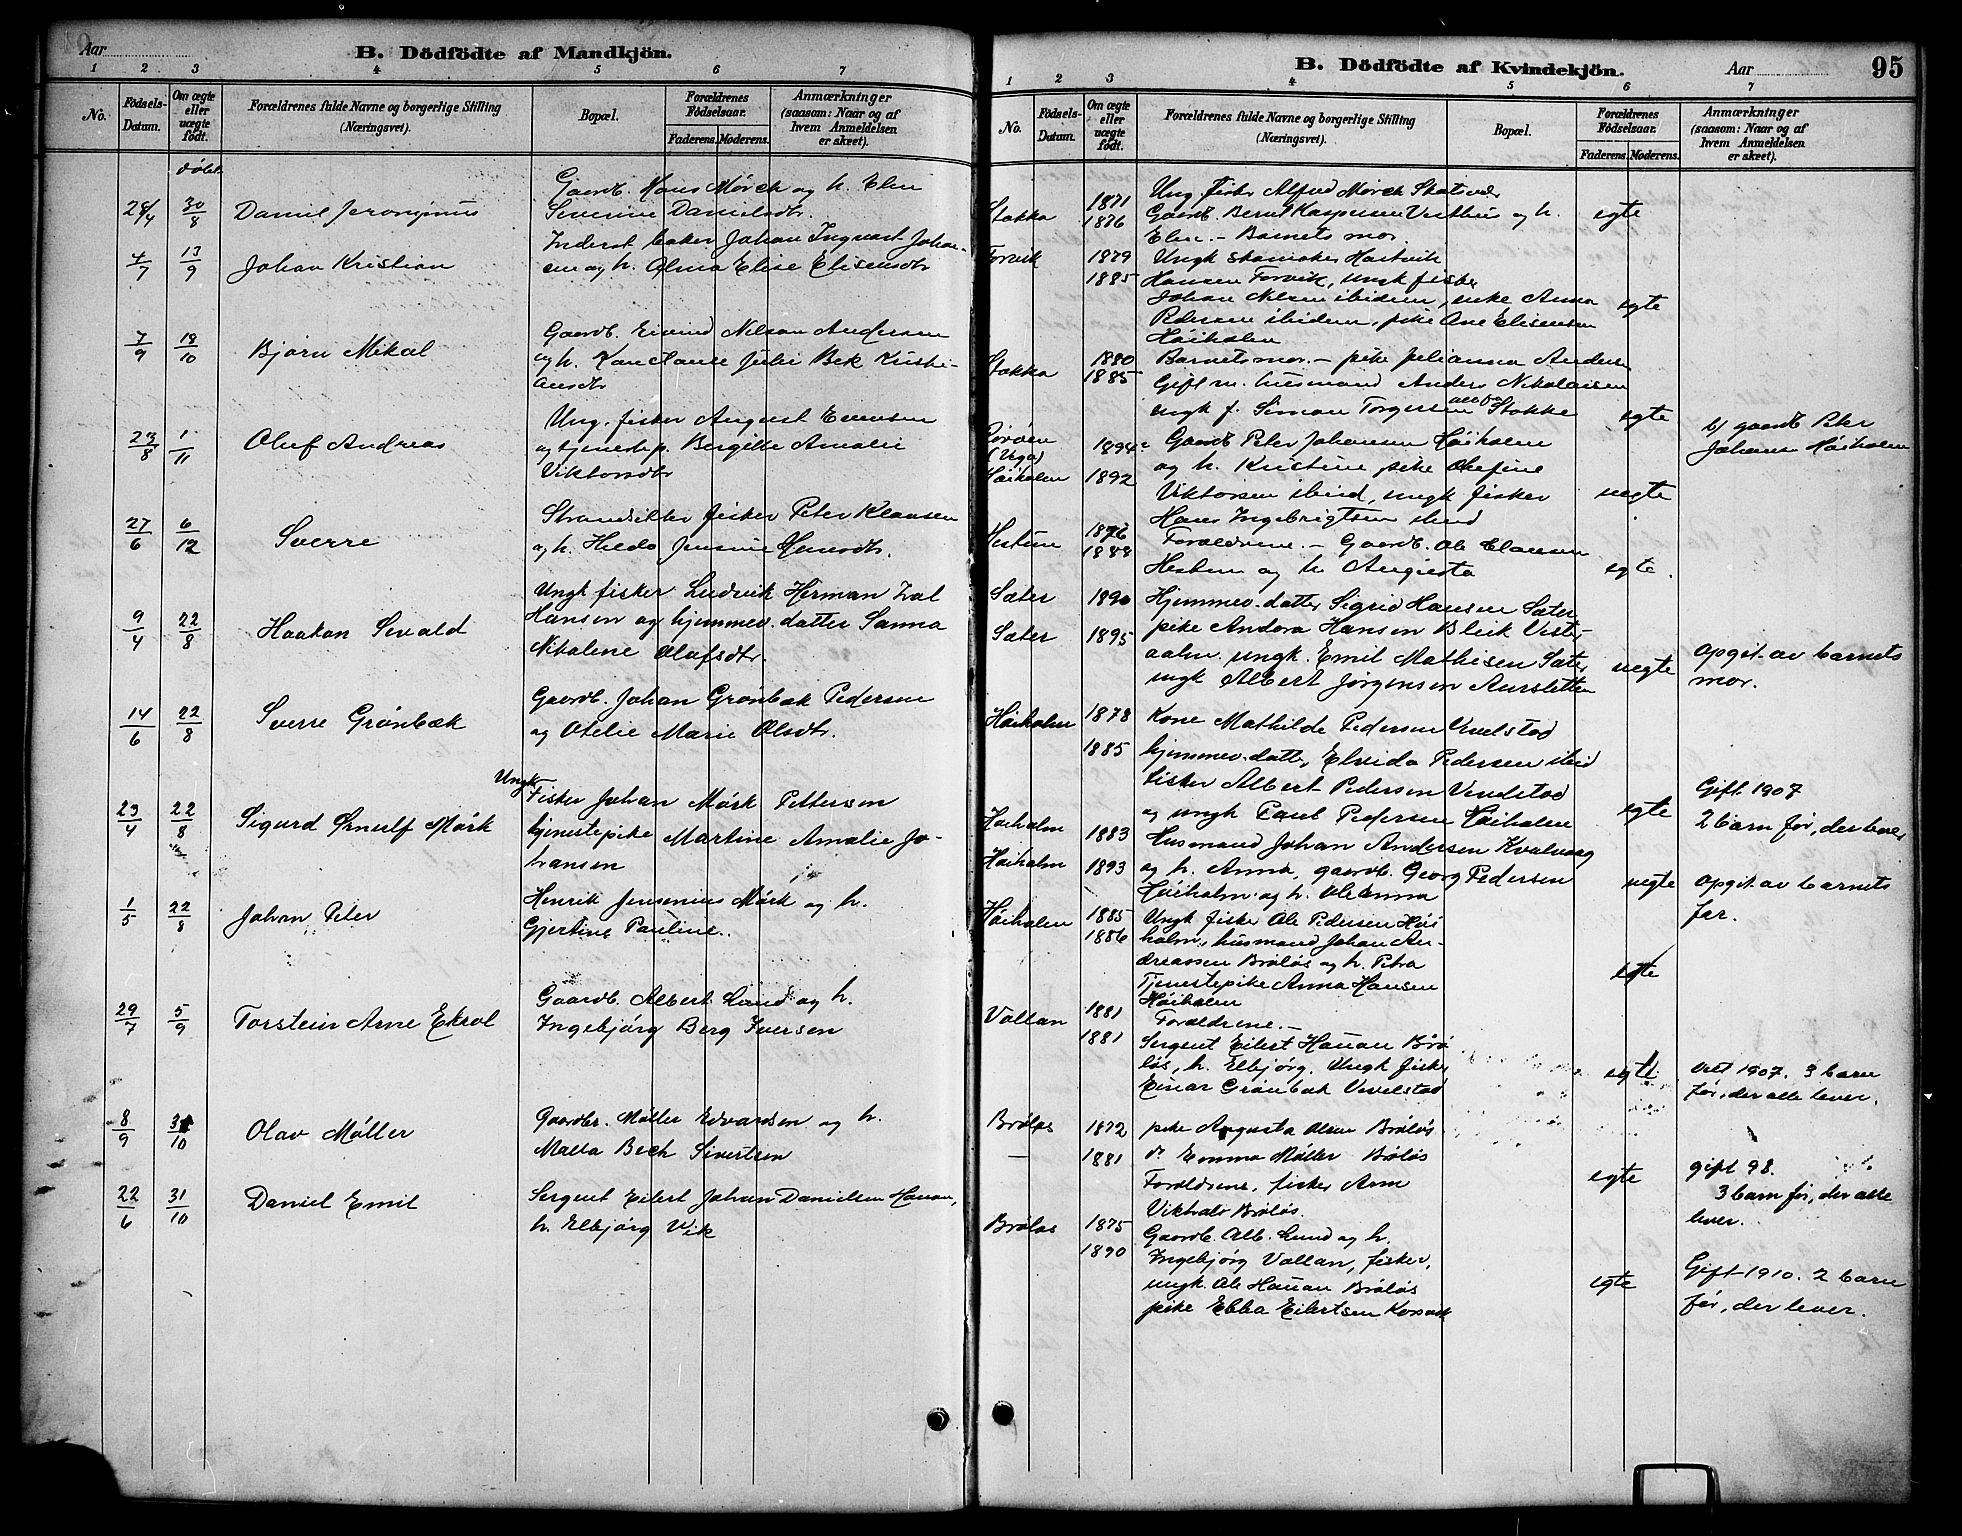 Aar
B. Dödfödte af Mandkjön.
1 2 3 4 5 6 7
No.
Födsels-Datum.
Om ægte eller uægte födt.
Forældrenes fulde Navne og borgerlige Stilling (Næringsvei).
Bopæl.
Forældrenes Födselsaar.
Faderens. Moderens.
Anmærkninger (saasom: Naar og af hvem Anmeldelsen er skeet).
døbt
28/4 30/8 Daniel Jeronymus
Gaardb. Hans Mørch og h. Elen
Severine Danielsdtr.
4/7 13/9 Johan Kristian
Inderst baker Johan Ingvart Johan-
sen og h. Alma Elise Elisensdtr
7/9 18/10 Bjørn Mikal
Gaardb. Eivind Nilson Andersen
og h. Hansine Julie Bek Kristi-
ansdtr
23/8 1/11 Oluf Andreas
Ung. fisker August Evensen
og tjenestep. Bergitte Amalie
Viktorsdtr
27/6 6/12 Sverre
Strandsitter fisker Peter Klausen
og h. Hilda Jensine Hansdtr.
9/4 22/8 Haakon Sivald
Ungk fisker Ludvik Herman Zal
Hanson og hjemmev. datter Sanna
Nikoline Olufsdtr.
14/6 22/8 Sverre Grønbæk
Gaardb. Johan Grønbæk Pedersen
og Otelie Marie Olsdtr.
23/4 22/8 Sigurd Ørnulf Mørk
Ungk Fisker Johan Mørk Pettersen
tjenestepike Martine Amalie Jo-
hansen
1/5 22/8 Johan Peter
Henrik Jensenius Mørk og h.
Gjertine Pauline.
29/7 5/9 Torstein Arne Ekrol
Gaardb. Albert Lund og h.
Ingebjørg Berg Iversen
8/9 31/10 Olav Møller
Gaardbr. Møller Edvardsen og h.
Malla Bech Sivertsen
22/6 31/10 Daniel Emil
Sergent Eilert Johan Danielsen Hauan,
h. Elbjørg Vik
B. Dödfödte af Kvindekjön.
Aar 95
1 2 3 4 5 6 7
No.
Födsels-Datum.
Om ægte eller uægte födt.
Forældrenes fulde Navne og borgerlige Stilling (Næringsvei).
Bopæl.
Forældrenes Födselsaar.
Faderens. Moderens.
Anmærkninger (saasom: Naar og af hvem Anmeldelsen er skeet).
Stokka 1871 1876
Ung. fisker Alfred Mørch Skatsvær
Gaardb. Bernt Kaspersen Vesthus og h.
Elen. - Barnets mor.
egte
Forvik 1879 1885
Ungk skomaker Hartvik
Hansen Forvik, ungk fisker
Johan Nilsen ibidem, enke Anna
Pedersen ibidem, pike Ane Elisensen
Høiholm
egte
Stokka 1880 1885
Barnets mor. - pike Julianna Anders
Gift m. husmand Anders Nikolaisen
ungk f. Simon Torgersen alle fra Stokke
egte
Rørøen (Vega) 1894
Høiholm 1892
Gaardb Peter Johansen Høiholm
og h. Kristine, pike Olefine
Viktorsen ibid, ungk fisker
Hans Ingebrigtsen ibid
uegte
v/ gaardb Peter
Johansen Høiholm
Hestun 1876 1888
Forældrene. - Gaardb. Ole Clausen
Hestun og h. Augusta
egte.
Sæter 1890
Sæter 1895
Hjemmev. datter Sigrid Hansen Sæter
pike Andora Hansen Bleik Vester-
aalen, ungk. Emil Mathisen Sæter
ungk Albert Jørgensen Aursletten
uegte
Opgit av barnets
mor.
Høiholm 1878 1885
Kone Mathilde Pedersen Vevelstad
hjemmev. datter, Elvida Pedersen ibid
fisker Albert Pedersen Vevelstad
og ungk Paul Pedersen Høiholm
egte
Gift 1907
2 barn før, der lever
Høiholm 1883
Høiholm 1893
Husmand Johan Andersen Kvalvaag
og h. Anna, gaardb. Georg Pedersen
Høiholm og h. Oleanna
uegte
Opgit av barnets
far.
Høiholm 1885 1886
Ungk fisker Ole Pedersen Høi
holm, husmand Johan An-
dreassen Brøløs og h. Petra
Tjenestepike Anna Hansen
Høiholm
egte
Vallan 1881 1881
Forældrene. -
Sergent Eilert Hauan Brø
løs, h. Elbjørg. Ungk fisker
Einar Grønbæk Vevelstad
egte
Viet 1907. 3 barn
før, der alle lever.
Brøløs 1872
— 1881
pike Augusta Olsen Brøløs
do Emma Møller Brøløs
Forældrene, fisker Arn
Vikhals Brøløs.
egte
gift 98.
3 barn før, der alle
lever.
Brøløs 1875 1890
Gaardb. Alb. Lund og h.
Ingebjørg Vallan, fisker,
ungk Ole Hauan Brøløs
pike Ebba Eilertsen Korsvik
egte
Gift 1910. 2 barn
før, der lever.